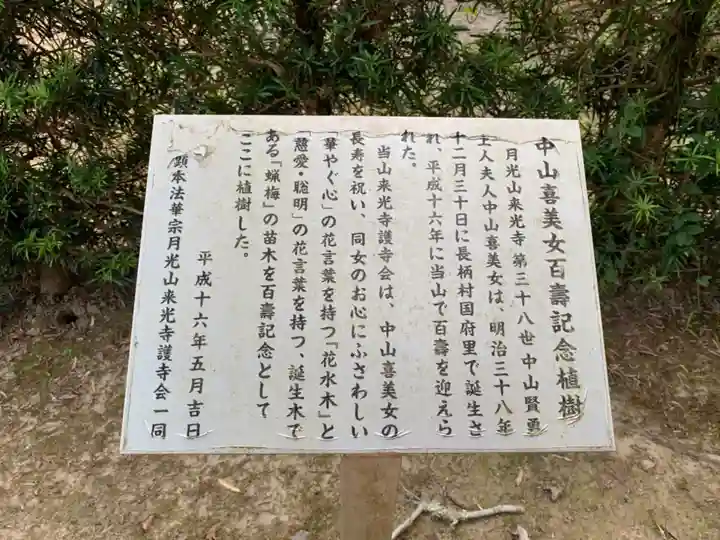 中山喜美女百壽記念植樹
月光山来光寺 第三十八世中山賢勇
主人夫人中山喜美女は、明治三十八年
十二月三十日に長柄村国府里で誕生さ
れ、平成十六年に当山で百壽を迎えら
れた。
当山来光寺護寺会は、中山喜美女の
長寿を祝い、同女のお心にふさわしい
「華やぐ心」の花言葉を持つ「花水木」と
「慈愛・聡明」の花言葉を持つ、誕生木で
ある「蝋梅」の苗木を百壽記念として
ここに植樹した。
平成十六年五月吉日
顕本法華宗月光山来光寺護寺会一同